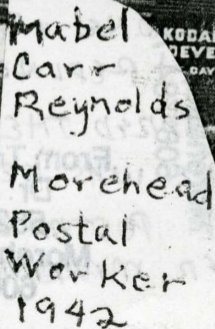 Mabel
Carr
Reynolds
Morehead
Postal
Worker
1942
KODA
DEVE